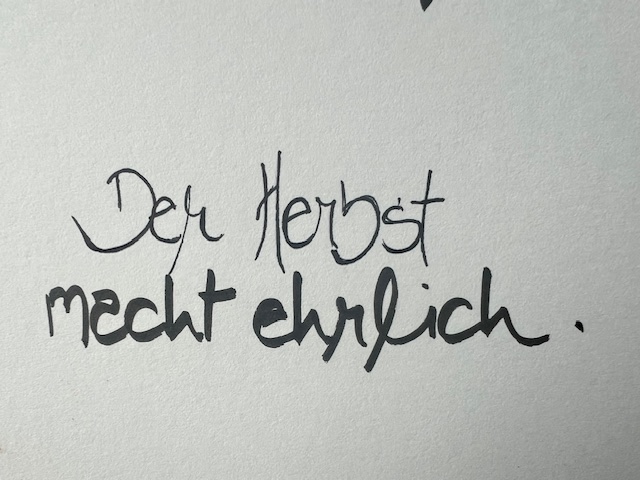 Der Herbst
macht ehrlich.